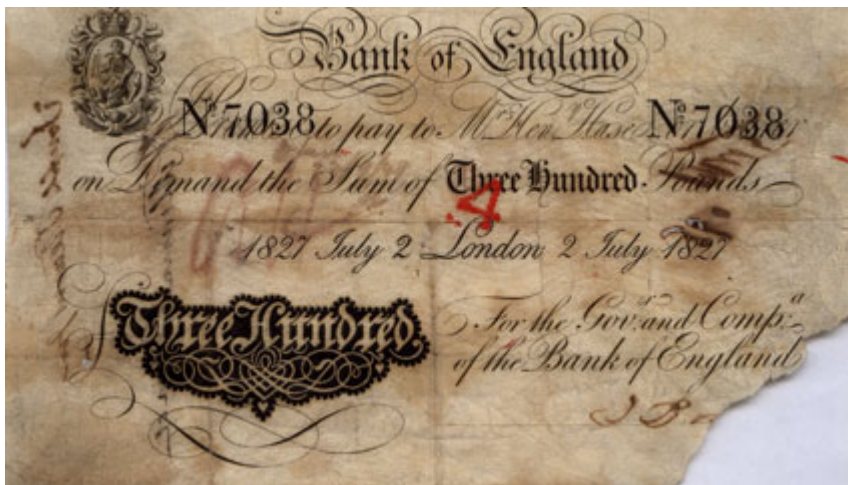 Bank of England
Nº 7038 to pay to Mʳ Henʸ Hase Nº 7038
on Demand the Sum of Three Hundred Pounds
4
1827 July 2 London 2 July 1827
£ Three Hundred. For the Govʳ and Compᵃ
of the Bank of England